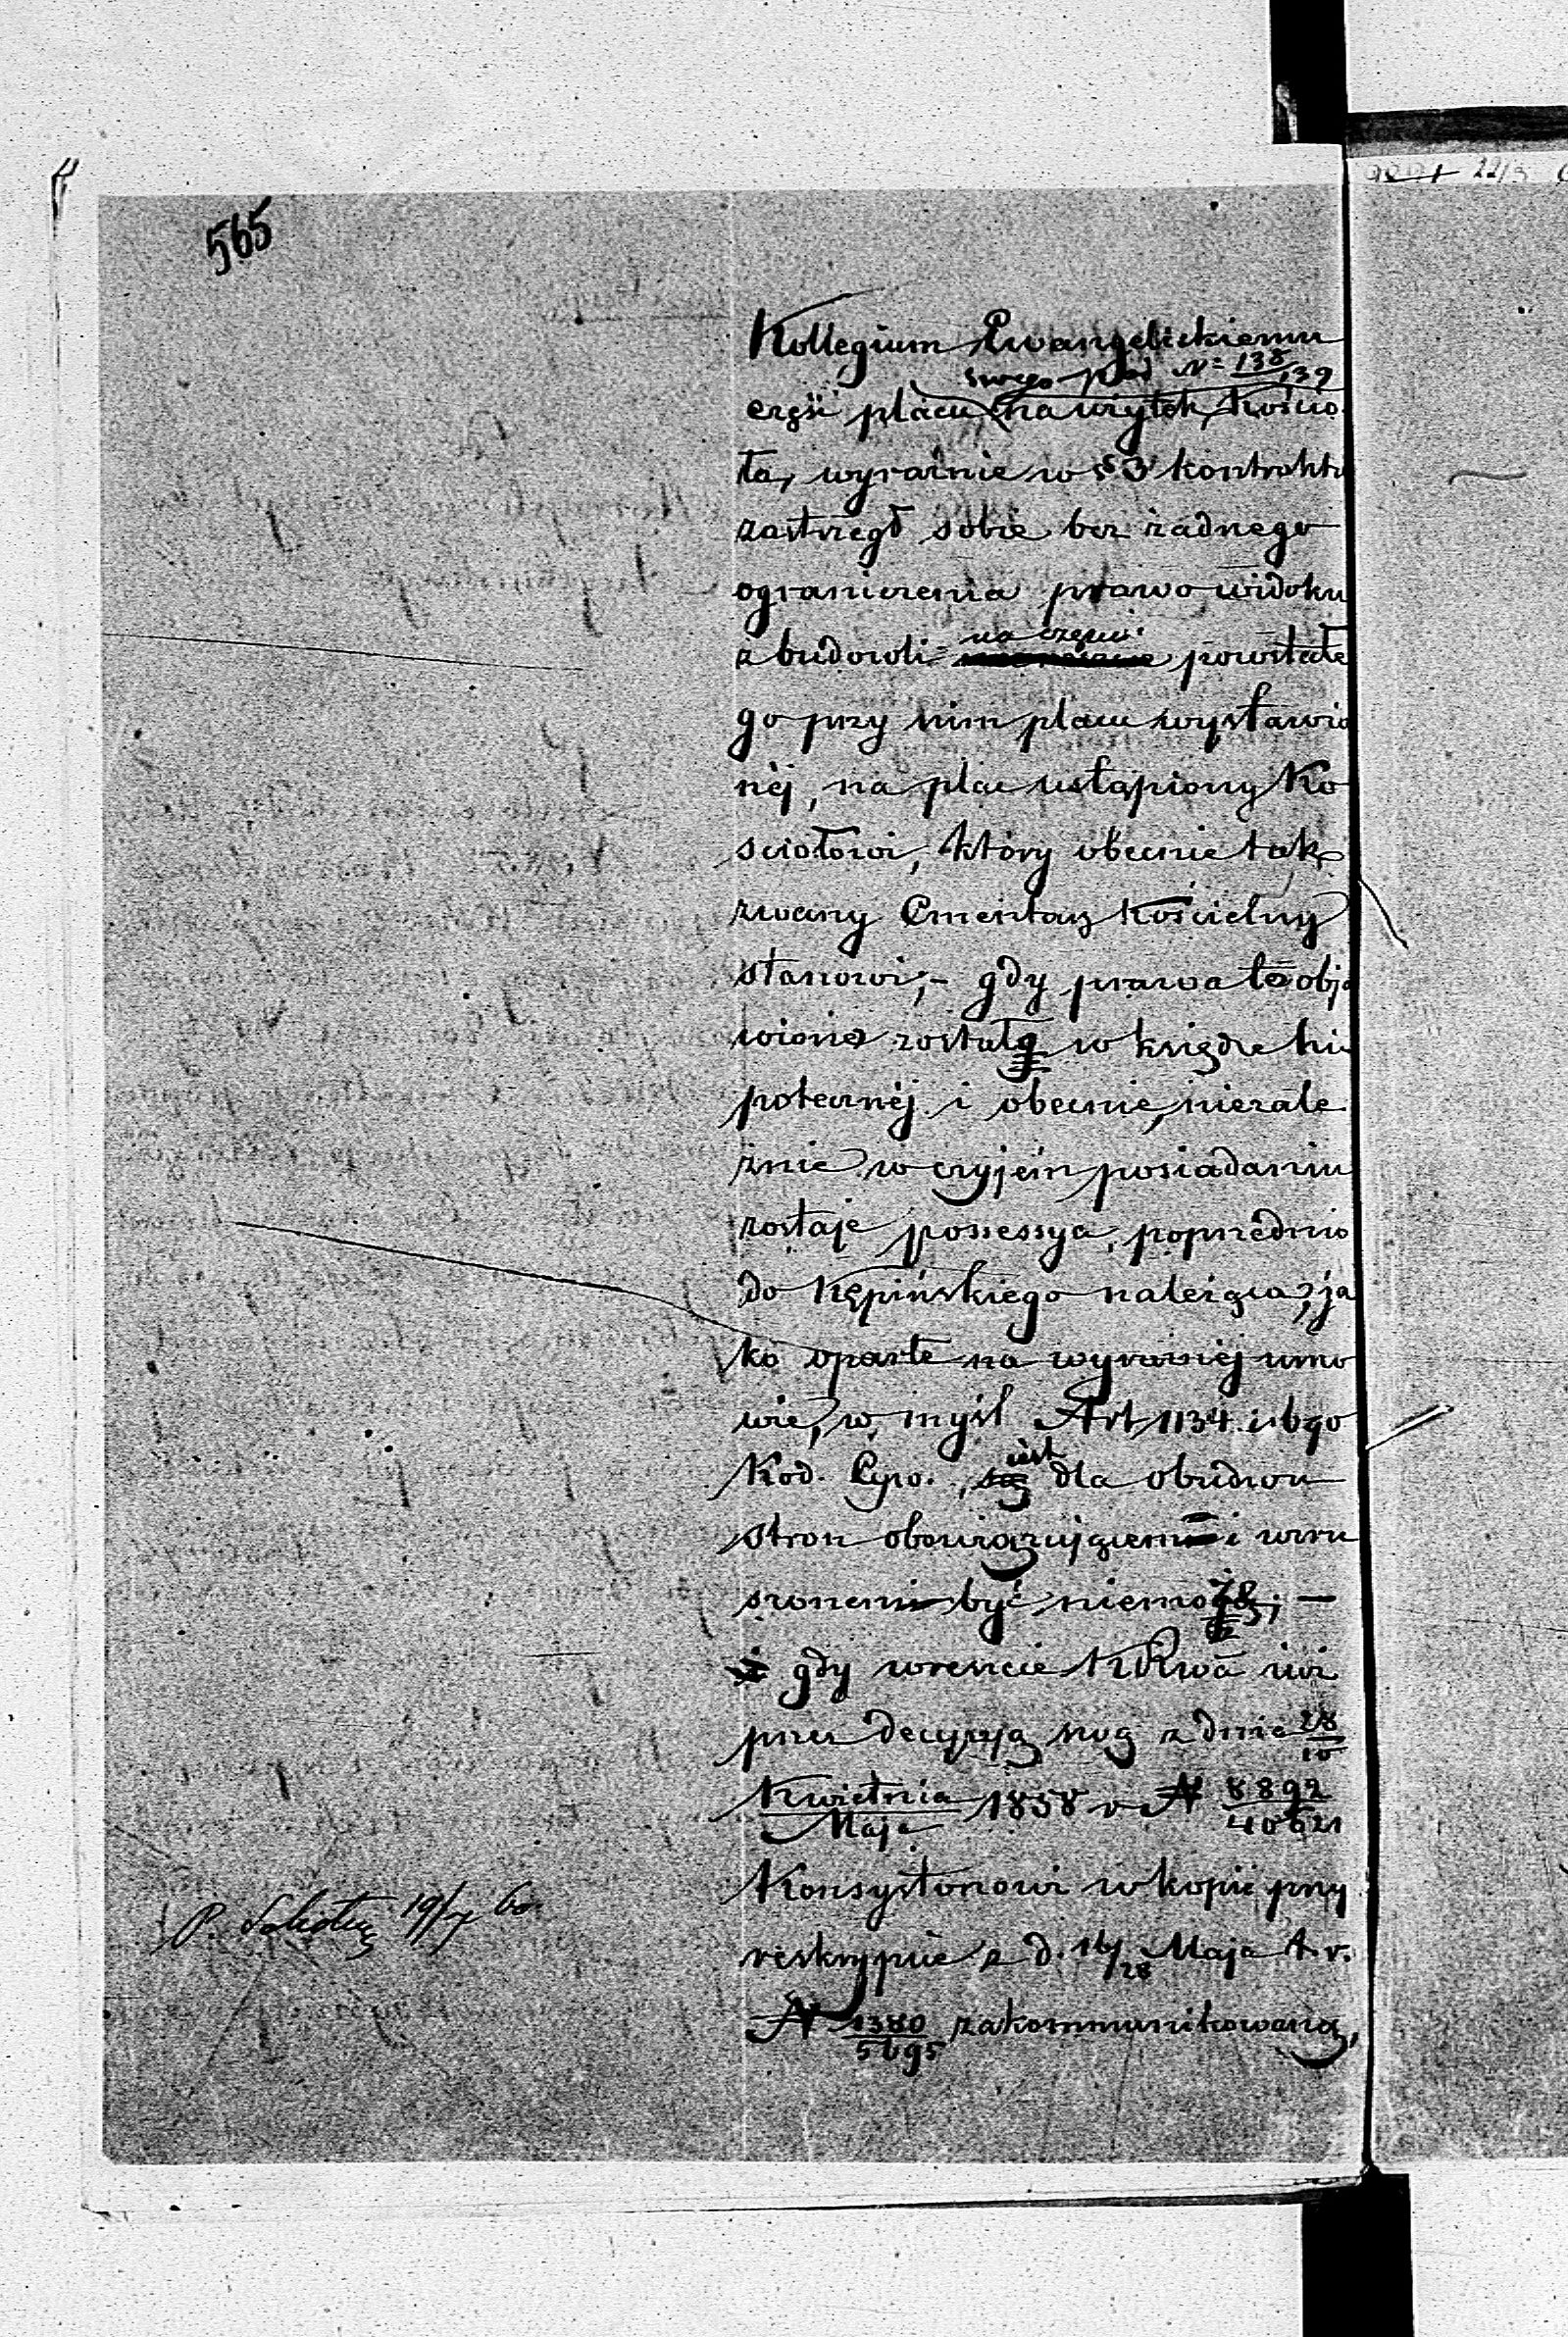 565
Kollegium Ewangelickiemu
swego pod N= 138/139
części placu na użytek Kościo
ła, wyraźnie w § 3 kontraktu
zastrzegł sobie bez żadnego
ograniczenia prawo widoku
z budowli na części pozostałe
go przy nim placu wystawio
néj, na plac ustąpiony Ko
ściołowi, który obecnie tak
zwany Cmentarz Kościelny
stanowi; – gdy prawa te obja
wione zostały w księdze hi
potecznéj i obecnie, niezale
żnie w czyjém posiadaniu
zostaje possessya, poprzednio
do Kępińskiego należąca, ja
ko oparte na wyraźnéj umo
wie, w myśl Art 1134 i 6go
Kod. Cyw., są jest dla obudwu
stron obowiązującem i wzru
szonem być niemoże; –
i gdy wreszcie
przez decyzyą swą z dnia 28/10
Kwietnia/Maja 1858 r N 8892/40621
Konsystorzowi w kopii przy
reskrypcie z d. 16/28 Maja t. r.
N 1380/5695 zakommunikowaną,
P. 19/ 60.
22/3